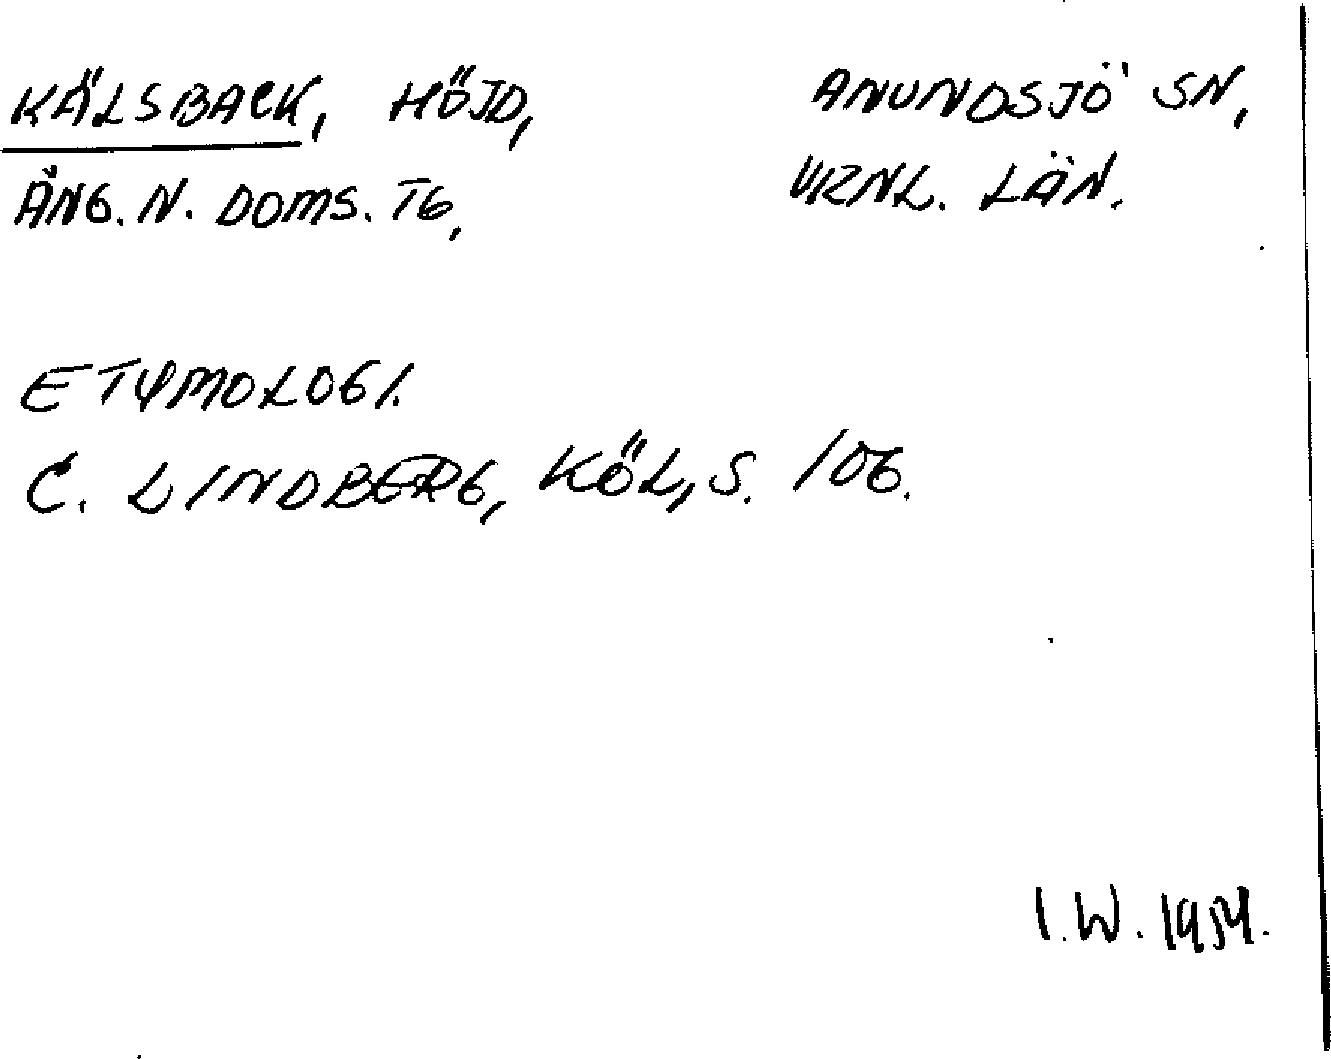 KÄLSBACK, HÖJD, ANUNDSJÖ SN,
ÅNG. N. DOMS. TG, VRNL. LÄN.
ETYMOLOGI.
C. LINDBERG, KÖL, S. 106.
I.W. 1954.